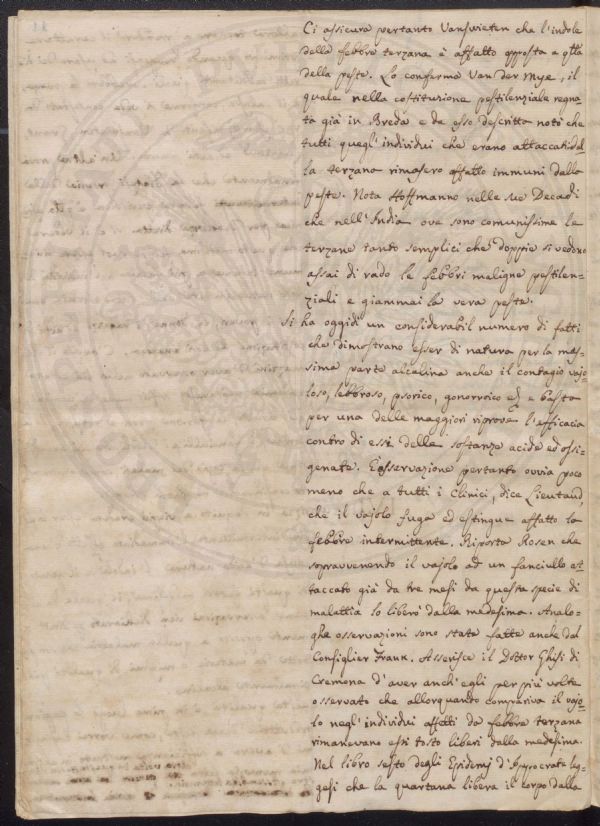 Ci assicura pertanto Vanswieten che l'indole
della febbre terzana è affatto opposta a qlla
della peste. Lo conferma Van der Mye, il
quale nella costituzione pestilenziale regna
ta già in Breda e da esso descritta notò che
tutti quegl'individui che erano attaccati dal
la terzana rimasero affatto immuni dalla
peste. Nota Hoffmanno nelle sue Decadi
che nell'India ove sono comunissime le
terzane tanto semplici che doppie si vedono
assai di rado le febbri maligne pestilen-
ziali e giammai la vera peste.
Si ha oggidì un considerabil numero di fatti
che dimostrano esser di natura per la mas-
sima parte alcalina anche il contagio vajo-
loso, lebbroso, psorico, gonorroico ed e basta
per una delle maggiori riprove l'efficacia
contro di essi delle sostanze acide ed ossi-
genate. È osservazione pertanto ovvia poco
meno che a tutti i Clinici, dice Lieutaud,
che il vajolo fuga ed estingue affatto la
febbre intermittente. Riporta Rosen che
sopravvenendo il vajolo ad un fanciullo at-
taccato già da tre mesi da questa specie di
malattia lo liberò dalla medesima. Analo-
ghe osservazioni sono state fatte anche dal
Consiglier Frank. Asserisce il Dottor Ghisi di
Cremona d'aver anch'egli per più volte
osservato che allorquando compariva il vajo-
lo negl'individui affetti da febbre terzana
rimanevano essi tosto liberi dalla medesima.
Nel libro sesto degli Epidemj d'Ippocrate leg-
gesi che la quartana libera il corpo dalla